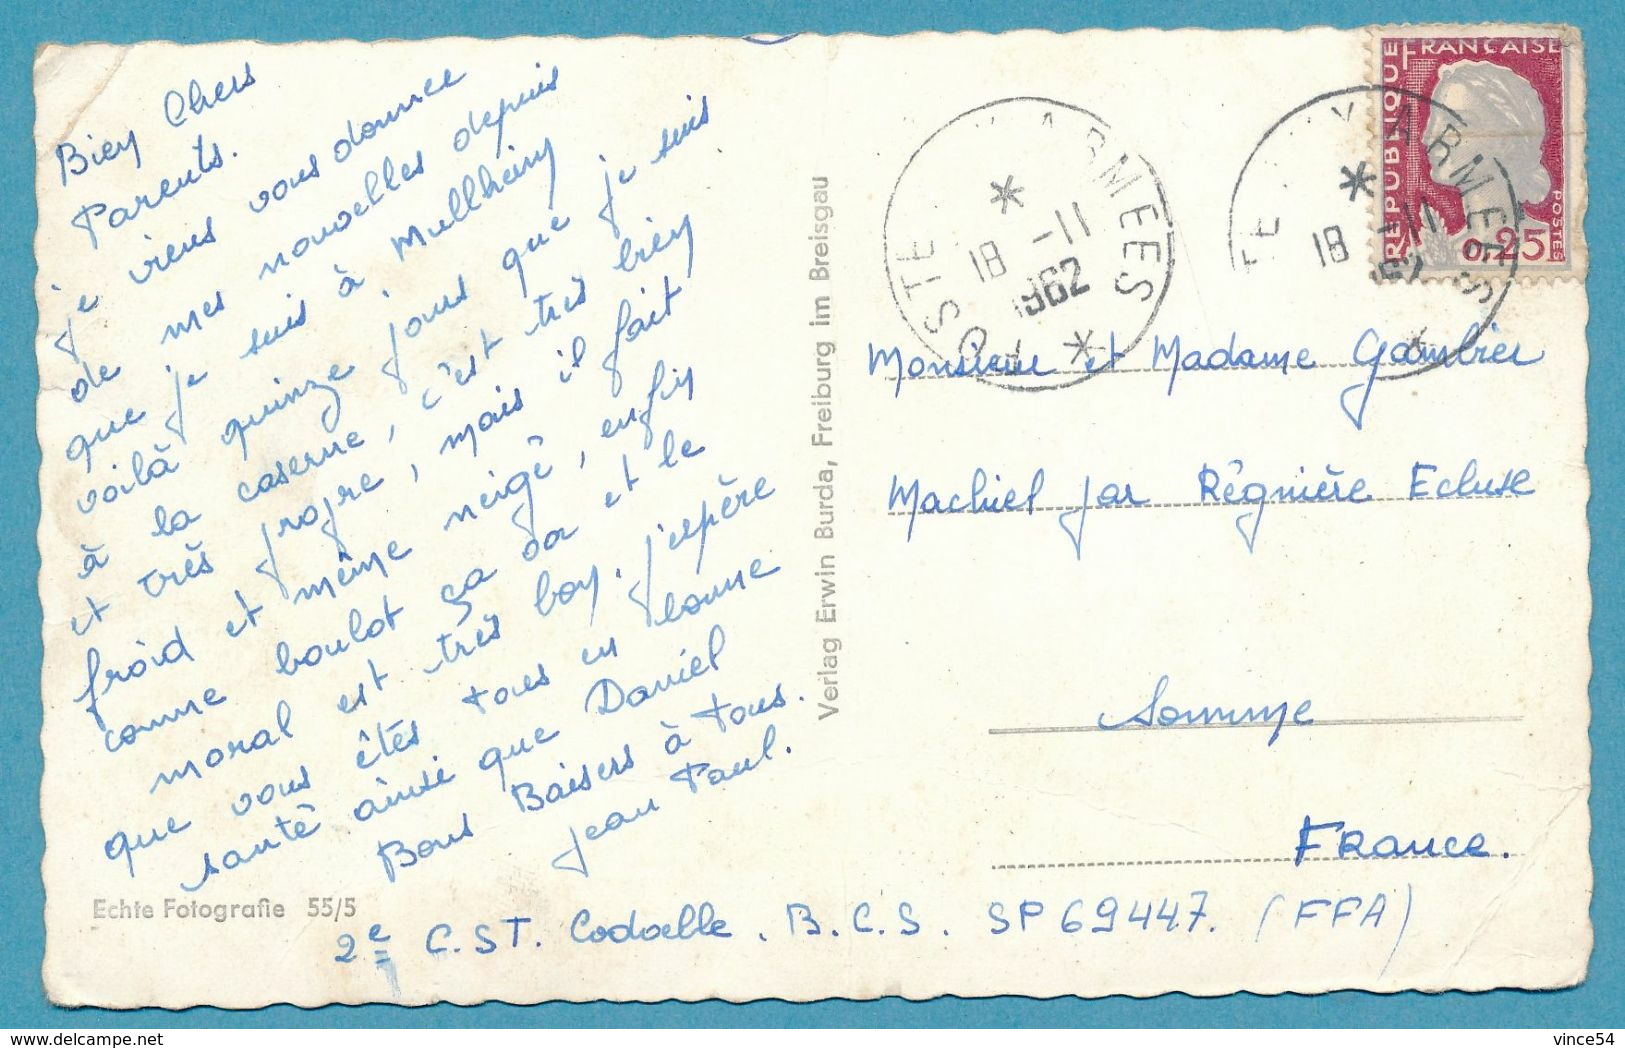 Bien Chers
Parents.
je viens vous donner
de mes nouvelles depuis
que je suis à Mullheim
voilà quinze jours que je suis
à la caserne, c'est très bien
et très propre, mais il fait
froid et même neigé, enfin
comme boulot ça va et le
moral est très bon. j'espère
que vous êtes tous en bonne
santé ainsi que Daniel
Bons Baisers à tous.
Jean Paul.
Echte Fotografie 55/5
2e C.ST. Codoelle. B.C.S. SP 69447. (FFA)
Verlag Erwin Burda, Freiburg im Breisgau
POSTE AUX ARMEES
18 -11
1962
POSTE AUX ARMEES
18 -11
1962
REPUBLIQUE FRANÇAISE
POSTES
0,25
Monsieur et Madame Gambier
Machiel par Régnière Ecluse
Somme
France.
vince54